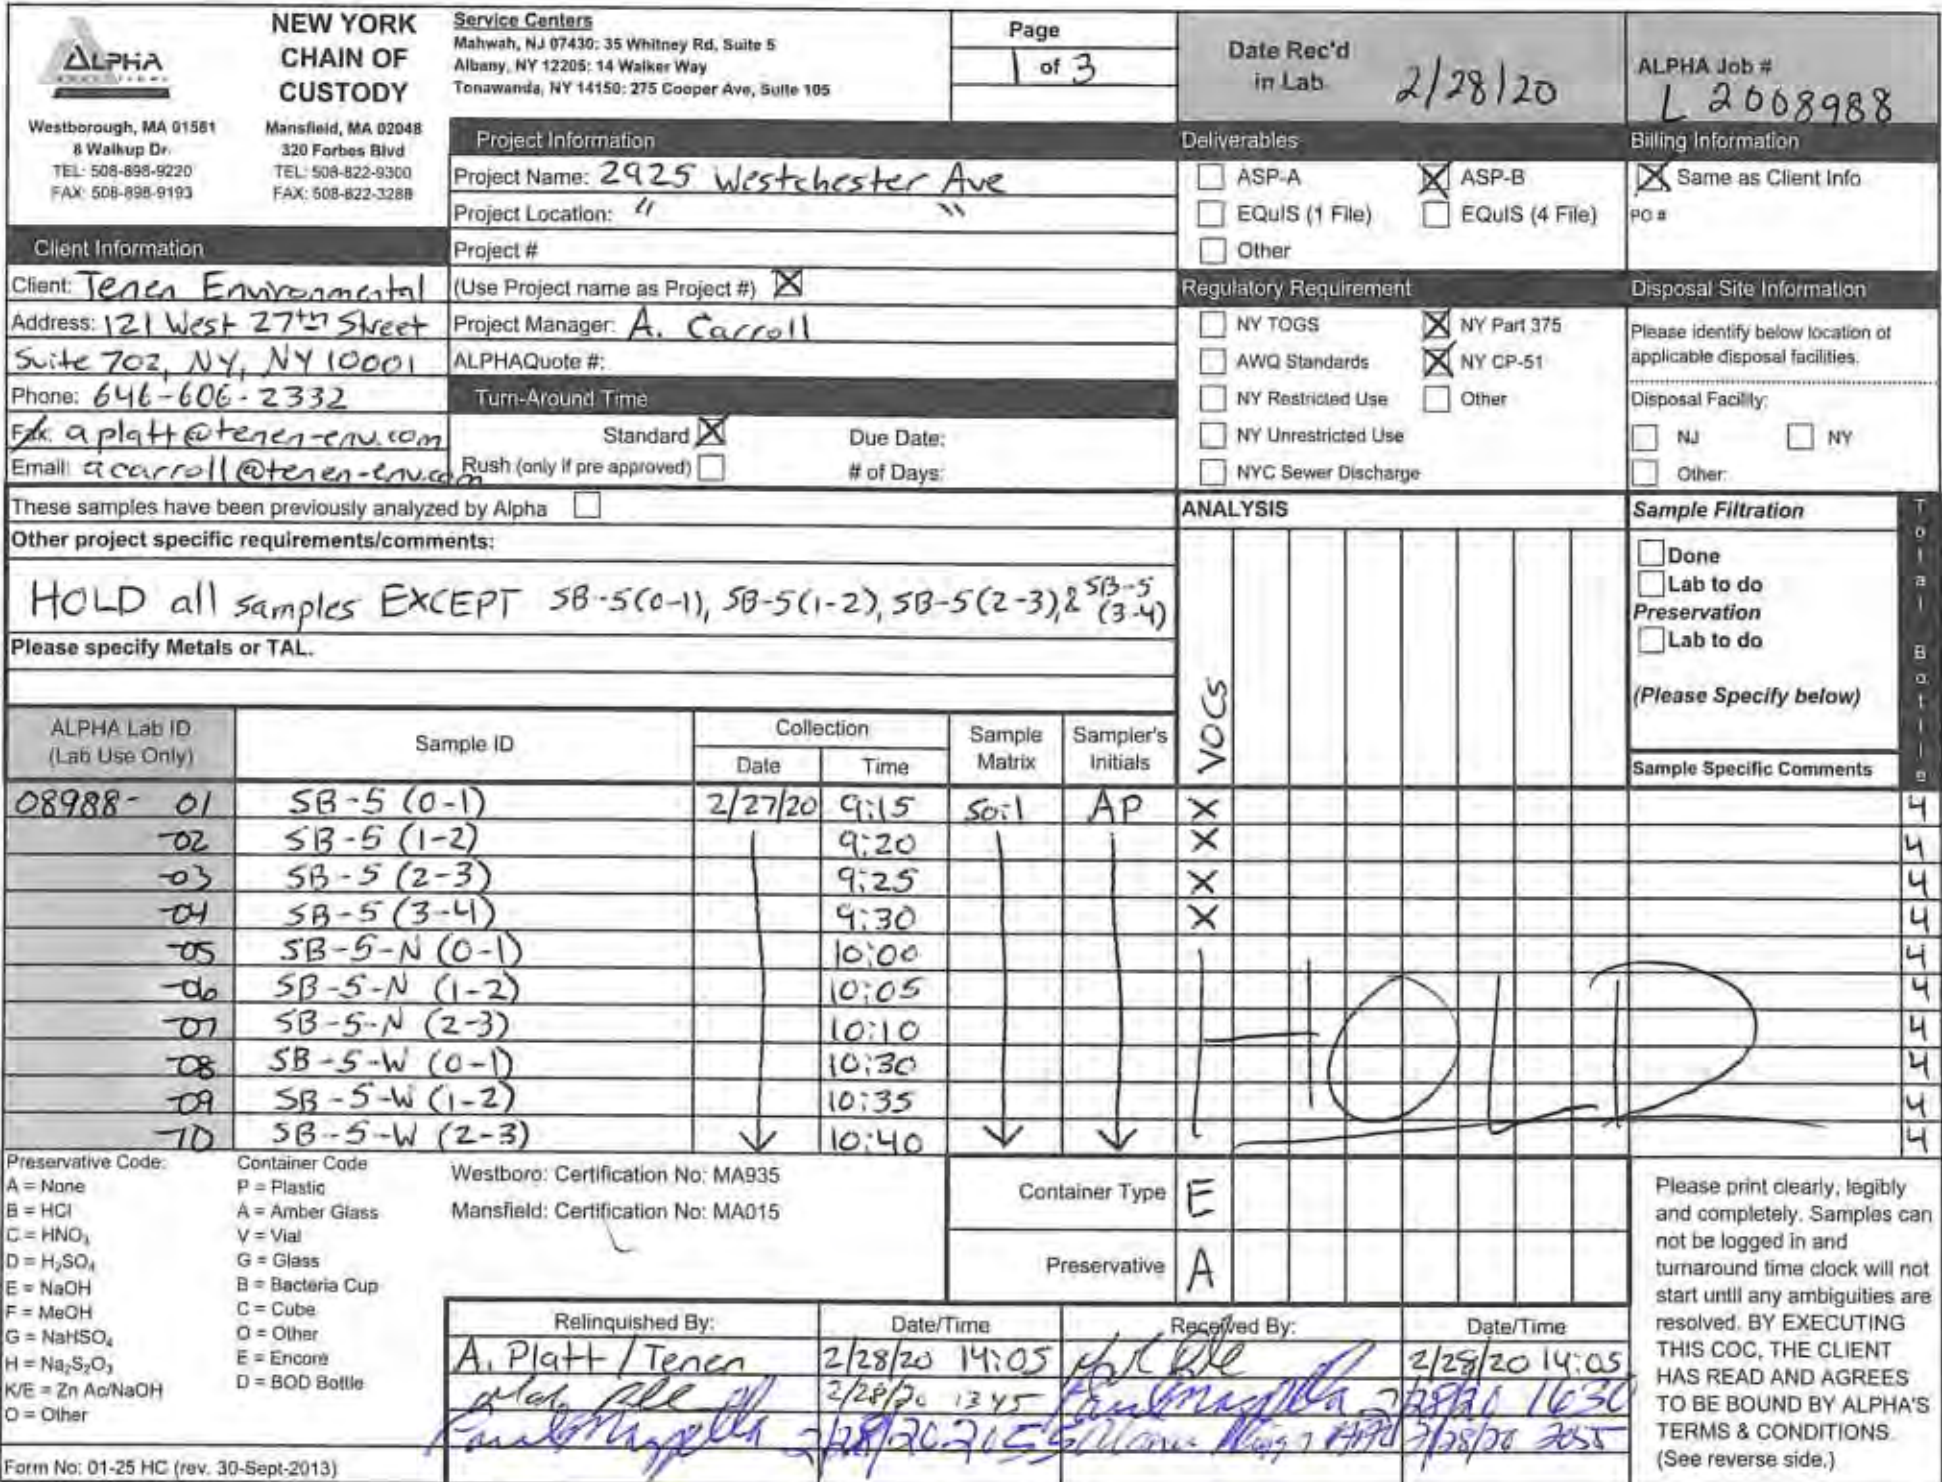 ALPHA
ANALYTICAL
NEW YORK
CHAIN OF
CUSTODY
Westborough, MA 01581
8 Walkup Dr.
TEL: 508-898-9220
FAX: 508-898-9193
Mansfield, MA 02048
320 Forbes Blvd
TEL: 508-822-9300
FAX: 508-822-3288
Service Centers
Mahwah, NJ 07430: 35 Whitney Rd, Suite 5
Albany, NY 12205: 14 Walker Way
Tonawanda, NY 14150: 275 Cooper Ave, Suite 105
Page
1 of 3
Date Rec'd
in Lab 2/28/20
ALPHA Job #
L 2008988
Client Information
Client: Tenen Environmental
Address: 121 West 27th Street
Suite 702, NY, NY 10001
Phone: 646-606-2332
Fax: aplatt@tenen-env.com
Email: acarroll@tenen-env.com
Project Information
Project Name: 2925 Westchester Ave
Project Location: " "
Project #
(Use Project name as Project #) X
Project Manager: A. Carroll
ALPHAQuote #:
Turn-Around Time
Standard X Due Date:
Rush (only if pre approved) # of Days:
Deliverables
ASP-A X ASP-B
EQuIS (1 File) EQuIS (4 File)
Other
Regulatory Requirement
NY TOGS X NY Part 375
AWQ Standards X NY CP-51
NY Restricted Use Other
NY Unrestricted Use
NYC Sewer Discharge
Billing Information
X Same as Client Info
PO #
Disposal Site Information
Please identify below location of
applicable disposal facilities.
Disposal Facility:
NJ NY
Other:
These samples have been previously analyzed by Alpha
Other project specific requirements/comments:
HOLD all samples EXCEPT SB-5(0-1), SB-5(1-2), SB-5(2-3), & SB-5
(3-4)
Please specify Metals or TAL.
ANALYSIS
VOCs
Sample Filtration
Done
Lab to do
Preservation
Lab to do
(Please Specify below)
Sample Specific Comments
Total Bottle
ALPHA Lab ID
(Lab Use Only)
Sample ID
Collection
Date Time
Sample
Matrix
Sampler's
Initials
08988- 01 SB-5 (0-1) 2/27/20 9:15 Soil AP X 4
-02 SB-5 (1-2) 9:20 X 4
-03 SB-5 (2-3) 9:25 X 4
-04 SB-5 (3-4) 9:30 X 4
-05 SB-5-N (0-1) 10:00 4
-06 SB-5-N (1-2) 10:05 4
-07 SB-5-N (2-3) 10:10 4
-08 SB-5-W (0-1) 10:30 4
-09 SB-5-W (1-2) 10:35 4
-10 SB-5-W (2-3) 10:40 4
HOLD
Preservative Code:
A = None
B = HCl
C = HNO3
D = H2SO4
E = NaOH
F = MeOH
G = NaHSO4
H = Na2S2O3
K/E = Zn Ac/NaOH
O = Other
Container Code
P = Plastic
A = Amber Glass
V = Vial
G = Glass
B = Bacteria Cup
C = Cube
O = Other
E = Encore
D = BOD Bottle
Westboro: Certification No: MA935
Mansfield: Certification No: MA015
Container Type E
Preservative A
Relinquished By: Date/Time Received By: Date/Time
A. Platt / Tenen 2/28/20 14:05 2/28/20 14:05
2/28/20 1345 2/28/20 1630
2/28/20 2055 2/28/20 2055
Please print clearly, legibly
and completely. Samples can
not be logged in and
turnaround time clock will not
start until any ambiguities are
resolved. BY EXECUTING
THIS COC, THE CLIENT
HAS READ AND AGREES
TO BE BOUND BY ALPHA'S
TERMS & CONDITIONS.
(See reverse side.)
Form No: 01-25 HC (rev. 30-Sept-2013)